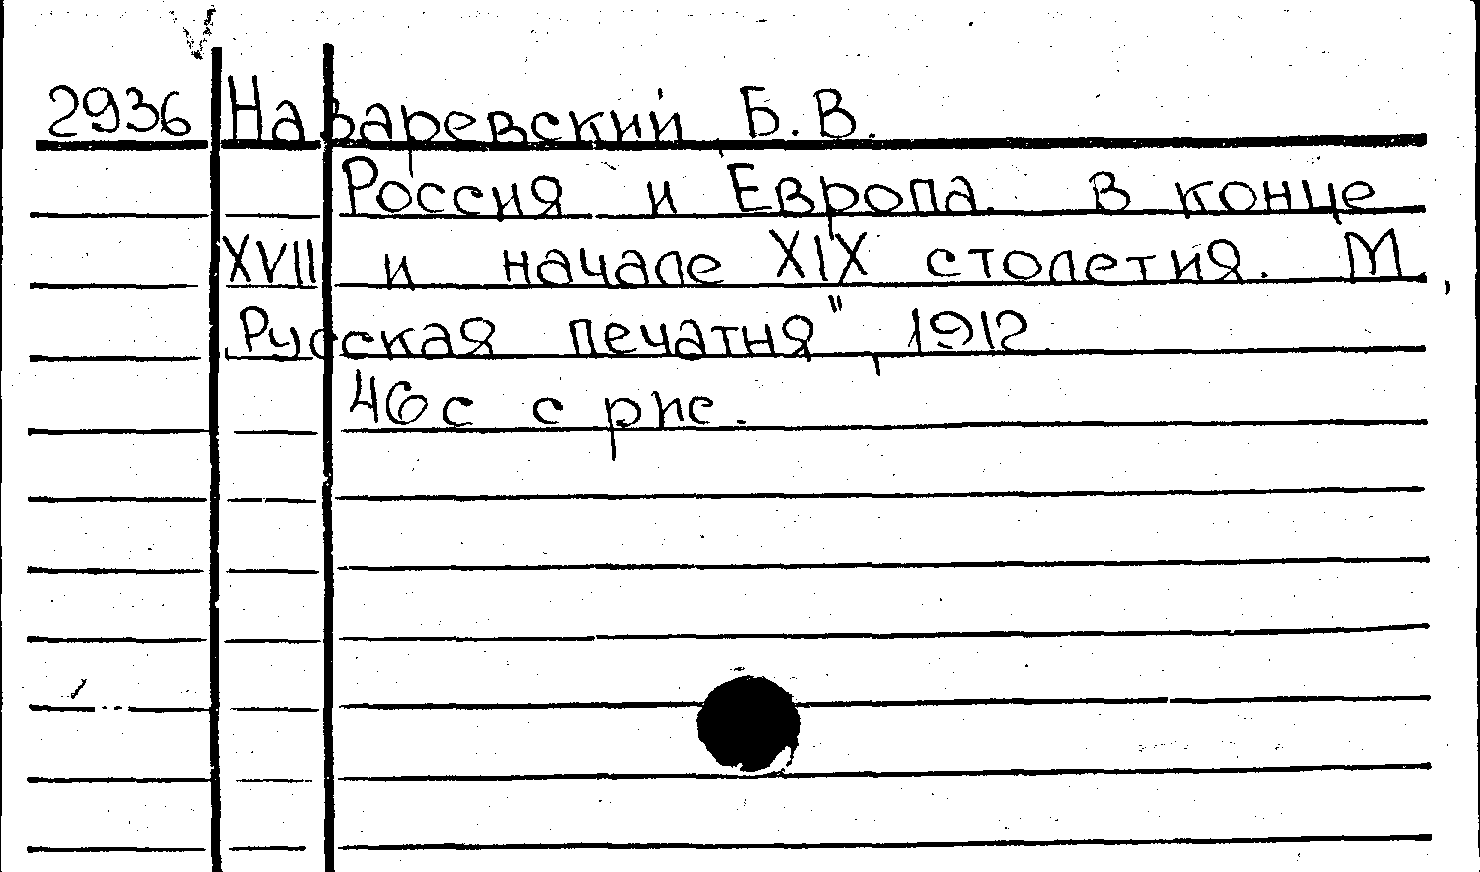 2936 Назаревский Б.В.
Россия и Европа в конце
XVIII и начале XIX столетия. М.,
„Русская печатня", 1912
46с с рис.